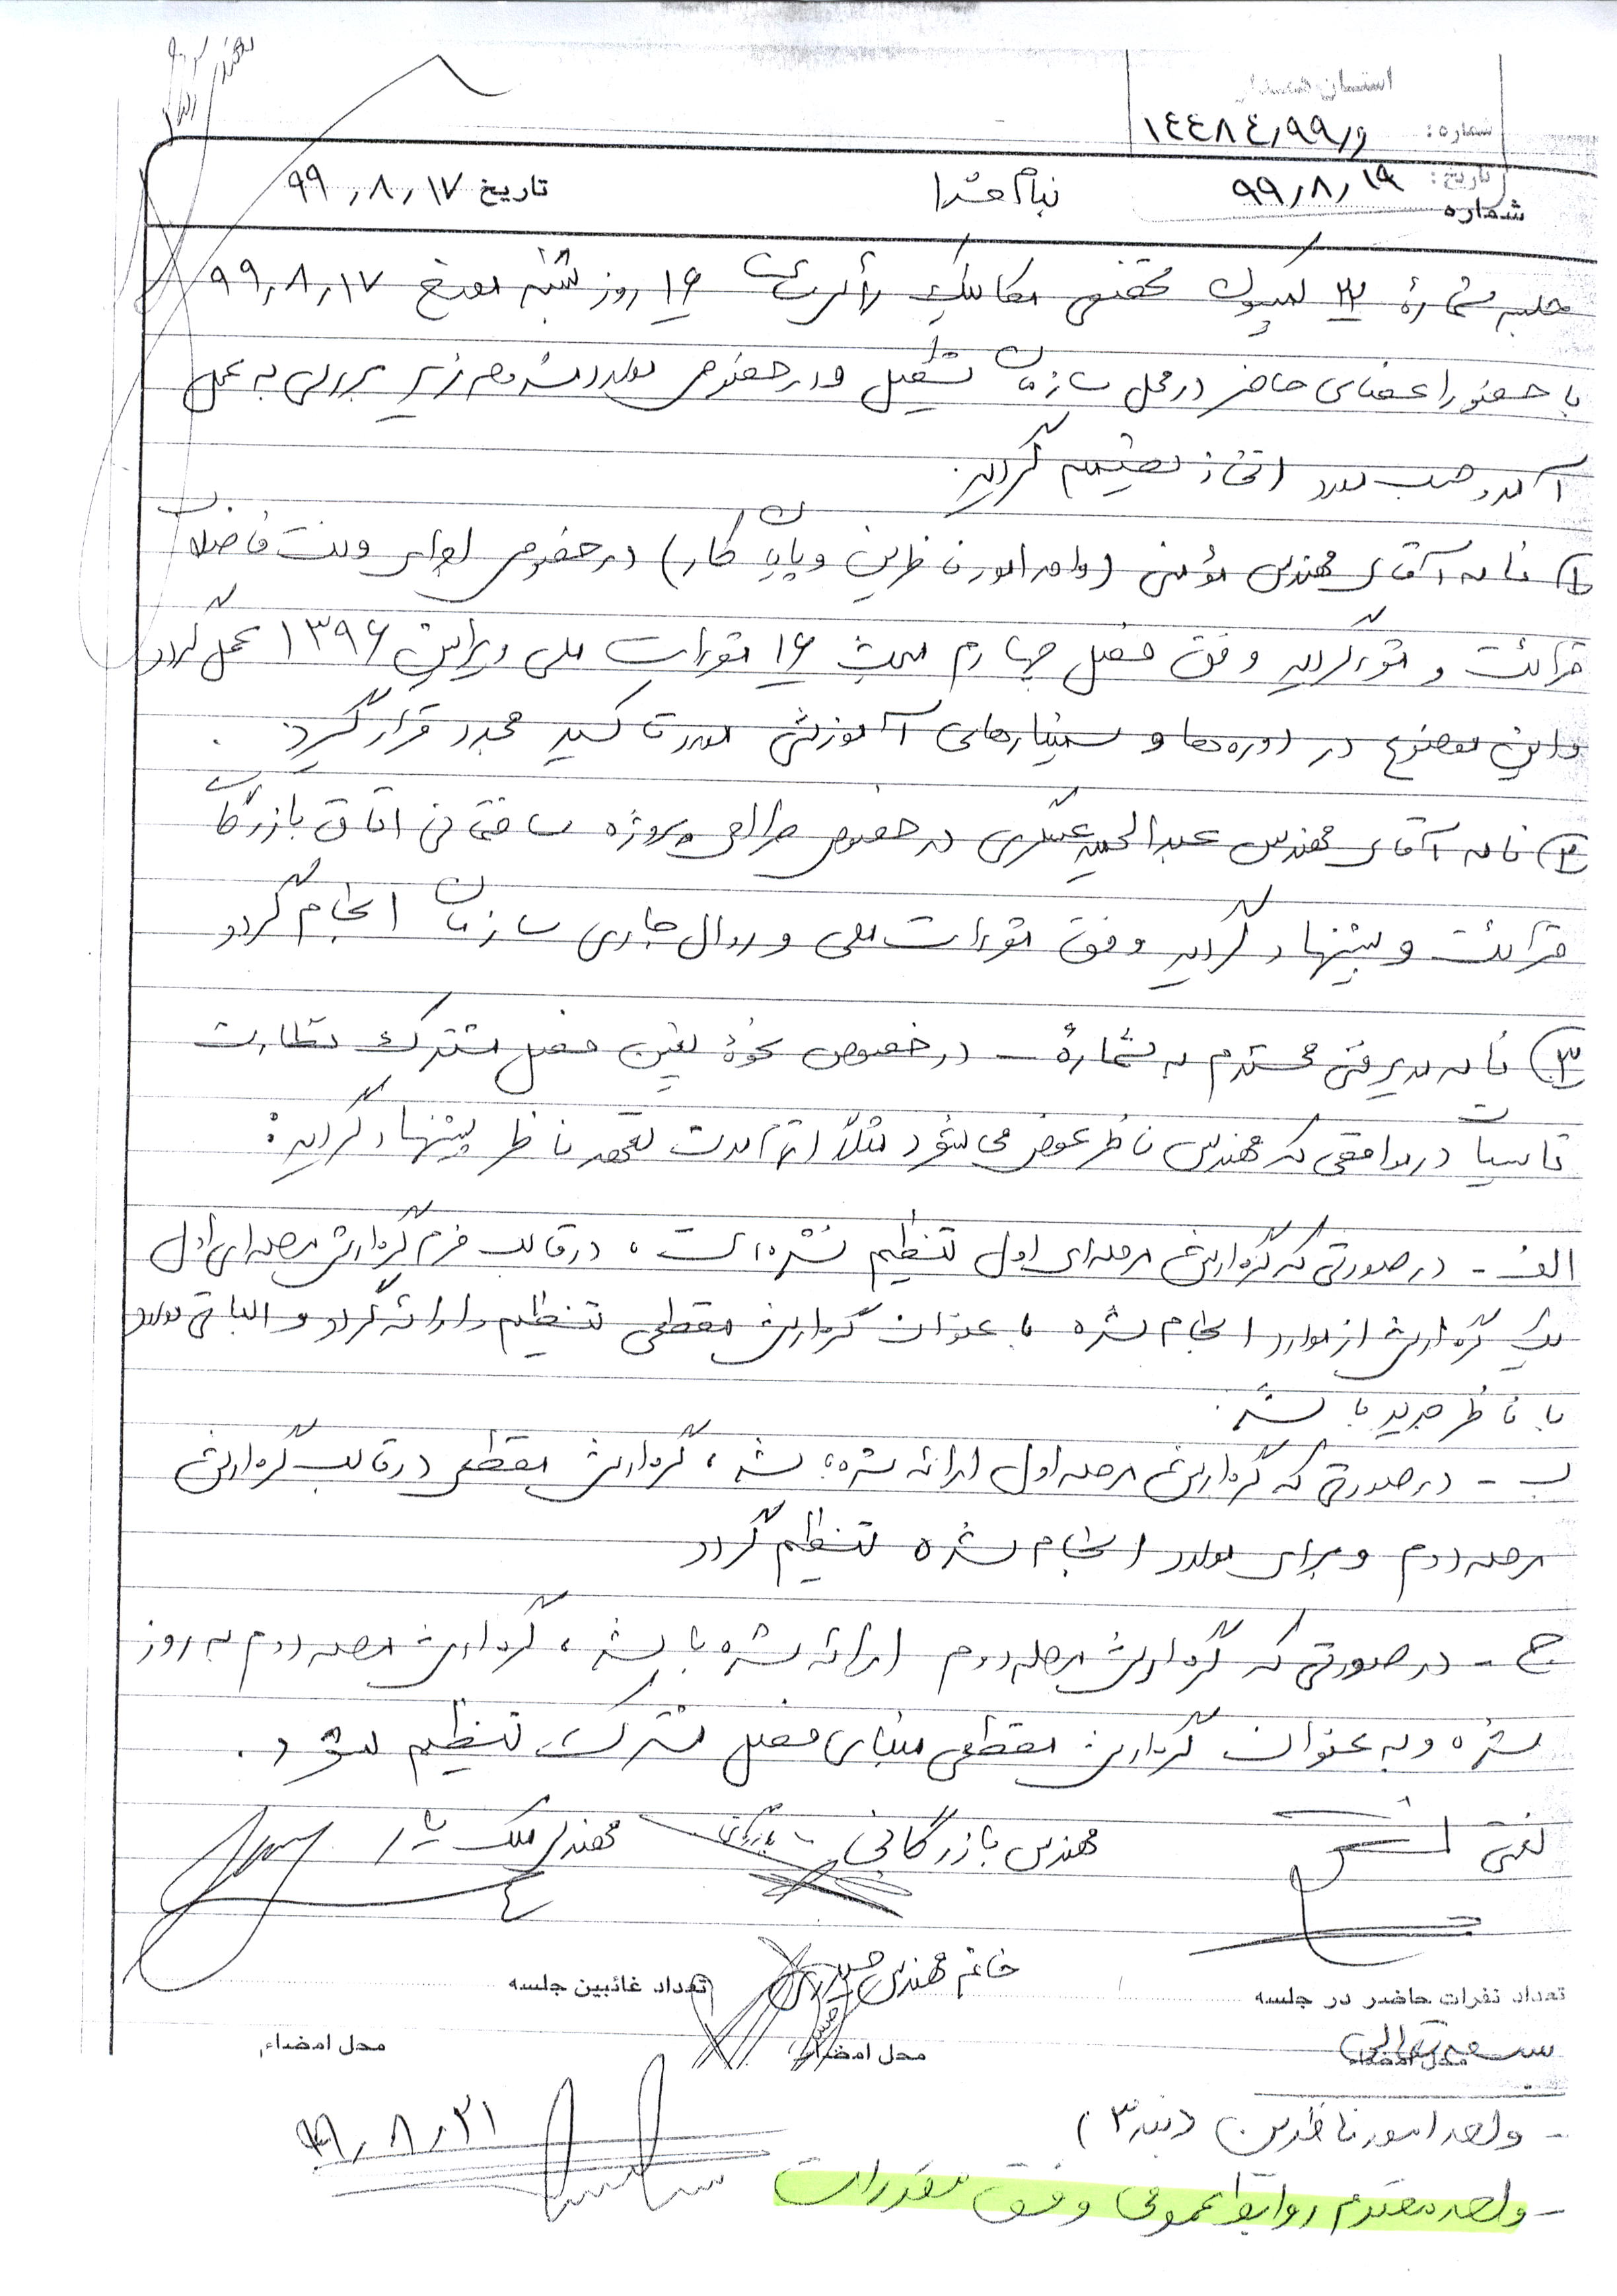 شماره: ۱۴۴۸۴/۹۹/و
تاریخ: ۹۹/۸/۱۹
شماره
بنام خدا
تاریخ ۹۹/۸/۱۷
جلسه شمارهٔ ۳ کمیسیون تخصصی مکانیک رأس ساعت ۱۶ روز شنبه مورخ ۹۹/۸/۱۷
با حضور اعضای حاضر در محل سازمان تشکیل و در خصوص موارد مشروحه زیر بررسی به عمل
آمد و حسب مورد اتخاذ تصمیم گردید.
۱) نامه آقای مهندس مؤمنی (واحد امور ناظرین و پایان کار) در خصوص لوله‌های ونت فاضلاب
قرائت و مقرر گردید وفق فصل چهارم مبحث ۱۶ مقررات ملی ویرایش ۱۳۹۶ عمل گردد
و این موضوع در دوره‌ها و سمینارهای آموزشی مورد تأکید مجدد قرار گیرد.
۲) نامه آقای مهندس عبدالحمید عسگری در خصوص طراحی پروژه ساختمانی اتاق بازرگانی
قرائت و پیشنهاد گردید وفق مقررات ملی و روال جاری سازمان انجام گردد
۳) نامه مدیر فنی محترم به شمارهٔ – در خصوص نحوهٔ تعیین فصل مشترک نظارت
تاسیسات در مواقعی که مهندس ناظر عوض می‌شود مثلاً اتمام مدت تعهد ناظر پیشنهاد گردید:
الف - در صورتی که گزارش مرحله‌ای اول تنظیم نشده است، در قالب فرم گزارش مرحله‌ای اول
یک گزارش از موارد انجام شده با عنوان گزارش مقطعی تنظیم و ارائه گردد و الباقی موارد
با ناظر جدید باشد.
ب - در صورتی که گزارش مرحله اول ارائه شده باشد، گزارش مقطعی در قالب گزارش
مرحله دوم و برای موارد انجام شده تنظیم گردد
ج - در صورتی که گزارش مرحله دوم ارائه شده باشد، گزارش مرحله دوم به روز
شده و به عنوان گزارش مقطعی مبنای فصل مشترک تنظیم شود.
مهندس بازرگانی
مهندس ملک
خانم مهندس حیدری
تعداد نفرات حاضر در جلسه
تعداد غائبین جلسه
محل امضاء
محل امضاء
محل امضاء
- واحد امور ناظرین (بند ۳)
۹۹/۸/۲۱
- واحد محترم روابط عمومی وفق مقررات